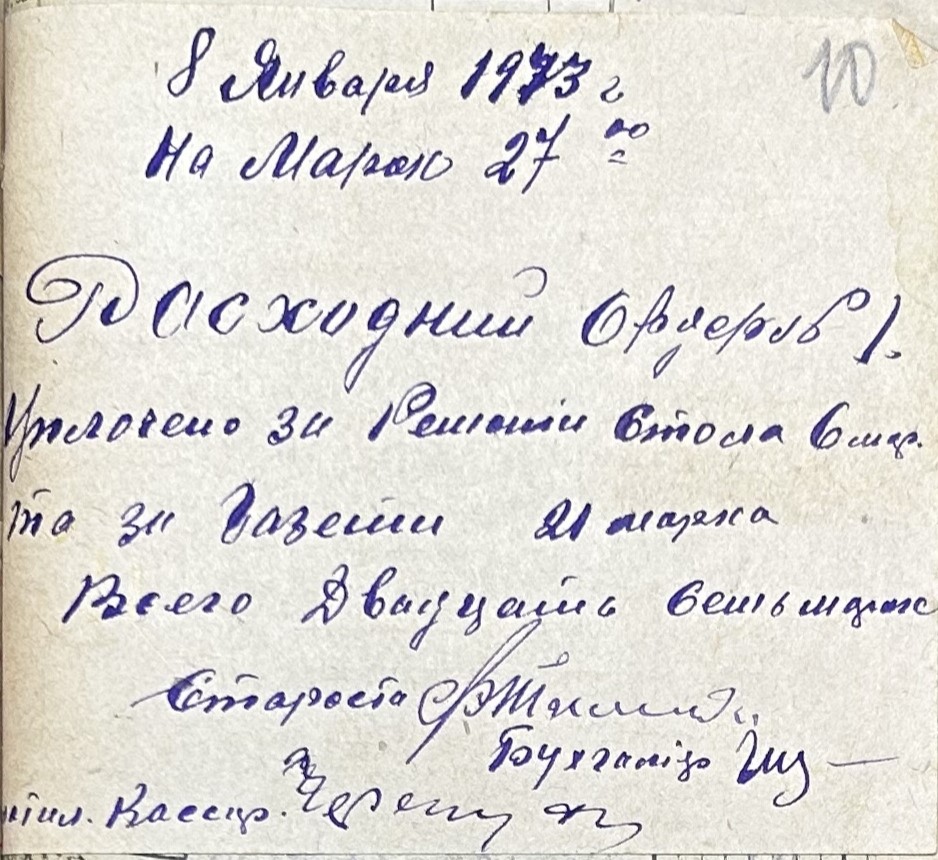 10
8 Января 1973 г
На Марок 27 00
Расходний Ордерь 1.
Уплочено за Ремонт Стола 6 мар.
та за Газети 21 марка
Всего Двадцать Семь марок
Староста
Бухгалтер
Кассир.